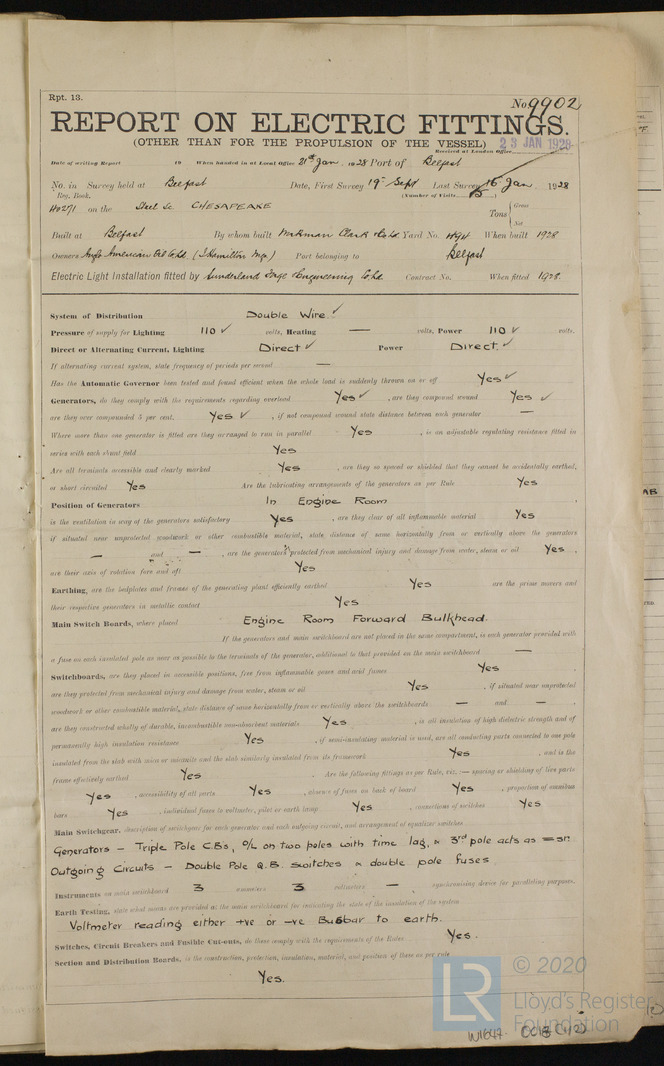 Rpt. 13.
No 9902
REPORT ON ELECTRIC FITTINGS.
(OTHER THAN FOR THE PROPULSION OF THE VESSEL)
23 JAN 1928
Received at London Office
Date of writing Report 19 When handed in at Local Office 21st Jan. 1928 Port of Belfast
No. in Survey held at Belfast Date, First Survey 19th Sept Last Survey 16 Jan. 1928
Reg. Book. (Number of Visits
40271 on the Steel Sc. CHESAPEAKE Tons { Gross Net
Built at Belfast By whom built Workman Clark & Co Ld Yard No. 494 When built 1928
Owners Anglo American Oil Co Ld. (J. Hamilton Mgr.) Port belonging to Belfast
Electric Light Installation fitted by Sunderland Forge & Engineering Co Ld. Contract No. When fitted 1928.
System of Distribution Double Wire ✓
Pressure of supply for Lighting 110 ✓ volts, Heating — volts, Power 110 ✓ volts.
Direct or Alternating Current, Lighting Direct ✓ Power Direct. ✓
If alternating current system, state frequency of periods per second —
Has the Automatic Governor been tested and found efficient when the whole load is suddenly thrown on or off Yes ✓
Generators, do they comply with the requirements regarding overload Yes ✓, are they compound wound Yes ✓
are they over compounded 5 per cent. Yes ✓, if not compound wound state distance between each generator —
Where more than one generator is fitted are they arranged to run in parallel Yes, is an adjustable regulating resistance fitted in
series with each shunt field Yes
Are all terminals accessible and clearly marked Yes, are they so spaced or shielded that they cannot be accidentally earthed,
or short circuited Yes Are the lubricating arrangements of the generators as per Rule Yes
Position of Generators In Engine Room
is the ventilation in way of the generators satisfactory Yes, are they clear of all inflammable material Yes
if situated near unprotected woodwork or other combustible material, state distance of same horizontally from or vertically above the generators
— and —, are the generators protected from mechanical injury and damage from water, steam or oil Yes.,
are their axis of rotation fore and aft Yes
Earthing, are the bedplates and frames of the generating plant efficiently earthed Yes are the prime movers and
their respective generators in metallic contact Yes
Main Switch Boards, where placed Engine Room Forward Bulkhead.
If the generators and main switchboard are not placed in the same compartment, is each generator provided with
a fuse on each insulated pole as near as possible to the terminals of the generator, additional to that provided on the main switchboard —
Switchboards, are they placed in accessible positions, free from inflammable gases and acid fumes Yes
are they protected from mechanical injury and damage from water, steam or oil Yes, if situated near unprotected
woodwork or other combustible material, state distance of same horizontally from or vertically above the switchboards — and —,
are they constructed wholly of durable, incombustible non-absorbent materials Yes, is all insulation of high dielectric strength and of
permanently high insulation resistance Yes, if semi-insulating material is used, are all conducting parts connected to one pole
insulated from the slab with mica or micanite and the slab similarly insulated from its framework Yes, and is the
frame effectively earthed Yes. Are the following fittings as per Rule, viz.:— spacing or shielding of live parts
Yes, accessibility of all parts Yes, absence of fuses on back of board Yes, proportion of omnibus
bars Yes, individual fuses to voltmeter, pilot or earth lamp Yes, connections of switches Yes
Main Switchgear, description of switchgear for each generator and each outgoing circuit, and arrangement of equalizer switches
Generators — Triple Pole C.B's, O/L on two poles with time lag, & 3rd pole acts as = sr.
Outgoing Circuits — Double Pole Q.B. switches & double pole fuses
Instruments on main switchboard 3 ammeters 3 voltmeters — synchronising device for paralleling purposes.
Earth Testing, state what means are provided at the main switchboard for indicating the state of the insulation of the system
Voltmeter reading either +ve or -ve Busbar to earth.
Switches, Circuit Breakers and Fusible Cut-outs, do these comply with the requirements of the Rules Yes.
Section and Distribution Boards, is the construction, protection, insulation, material, and position of these as per rule
Yes.
LR
© 2020
Lloyd's Register
Foundation
W1647 0018 (1/2)